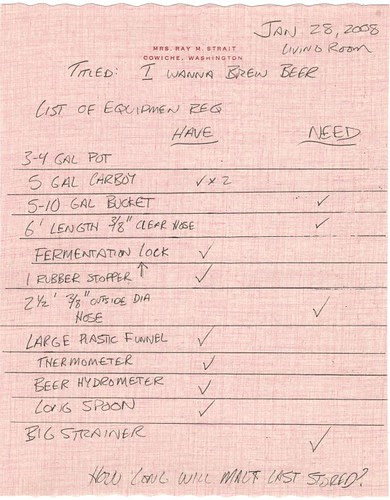 JAN 28, 2008
LIVING ROOM
MRS. RAY M. STRAIT
COWICHE, WASHINGTON
TITLED: I WANNA BREW BEER
LIST OF EQUIPMEN REQ
HAVE NEED
3-4 GAL POT
5 GAL CARBOY ✓ x 2
5-10 GAL BUCKET ✓
6' LENGTH 3/8" CLEAR HOSE ✓
FERMENTATION LOCK ✓
1 RUBBER STOPPER ↑ ✓
2 1/2' 3/8" OUTSIDE DIA
HOSE ✓
LARGE PLASTIC FUNNEL ✓
THERMOMETER ✓
BEER HYDROMETER ✓
LONG SPOON ✓
BIG STRAINER ✓
HOW LONG WILL MALT LAST STORED?